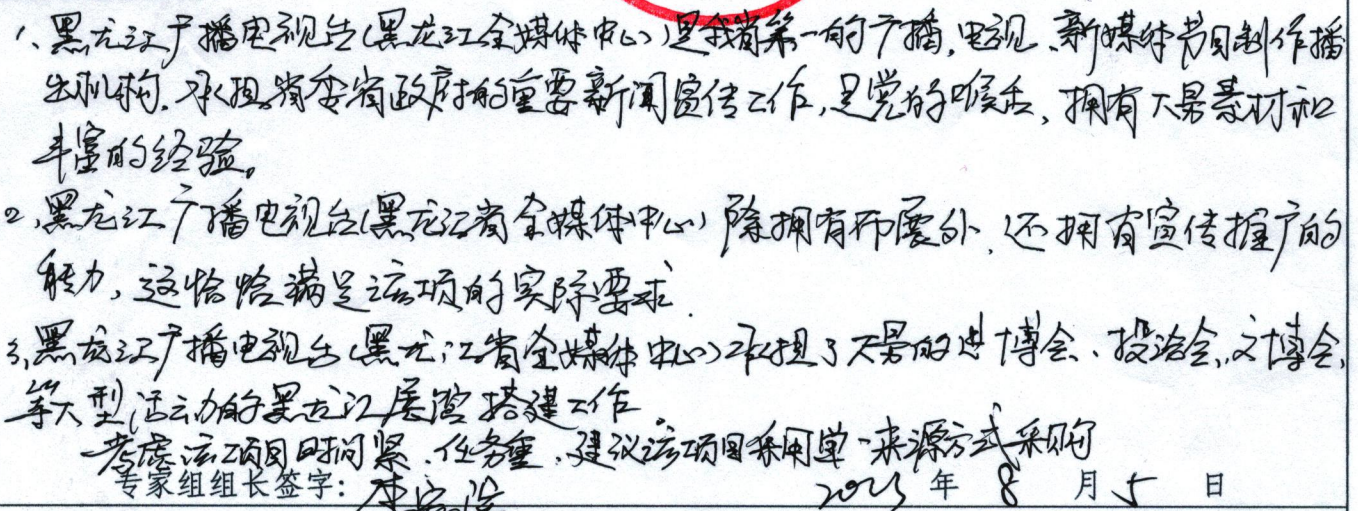 1、黑龙江广播电视台(黑龙江全媒体中心)是我省第一的广播,电视、新媒体节目制作播
出机构,承担省委省政府的重要新闻宣传工作,是党的喉舌,拥有大量素材和
丰富的经验。
2,黑龙江广播电视台(黑龙江省全媒体中心)除拥有布展外,还拥有宣传推广的
能力,这恰恰满足该项的实际要求.
3,黑龙江广播电视台(黑龙江省全媒体中心)承担了大量的进博会、投洽会,文博会,
等大型活动的黑龙江展馆搭建工作
考虑该项目时间紧、任务重,建议该项目采用单一来源方式采购
专家组组长签字:
2023年8月5日